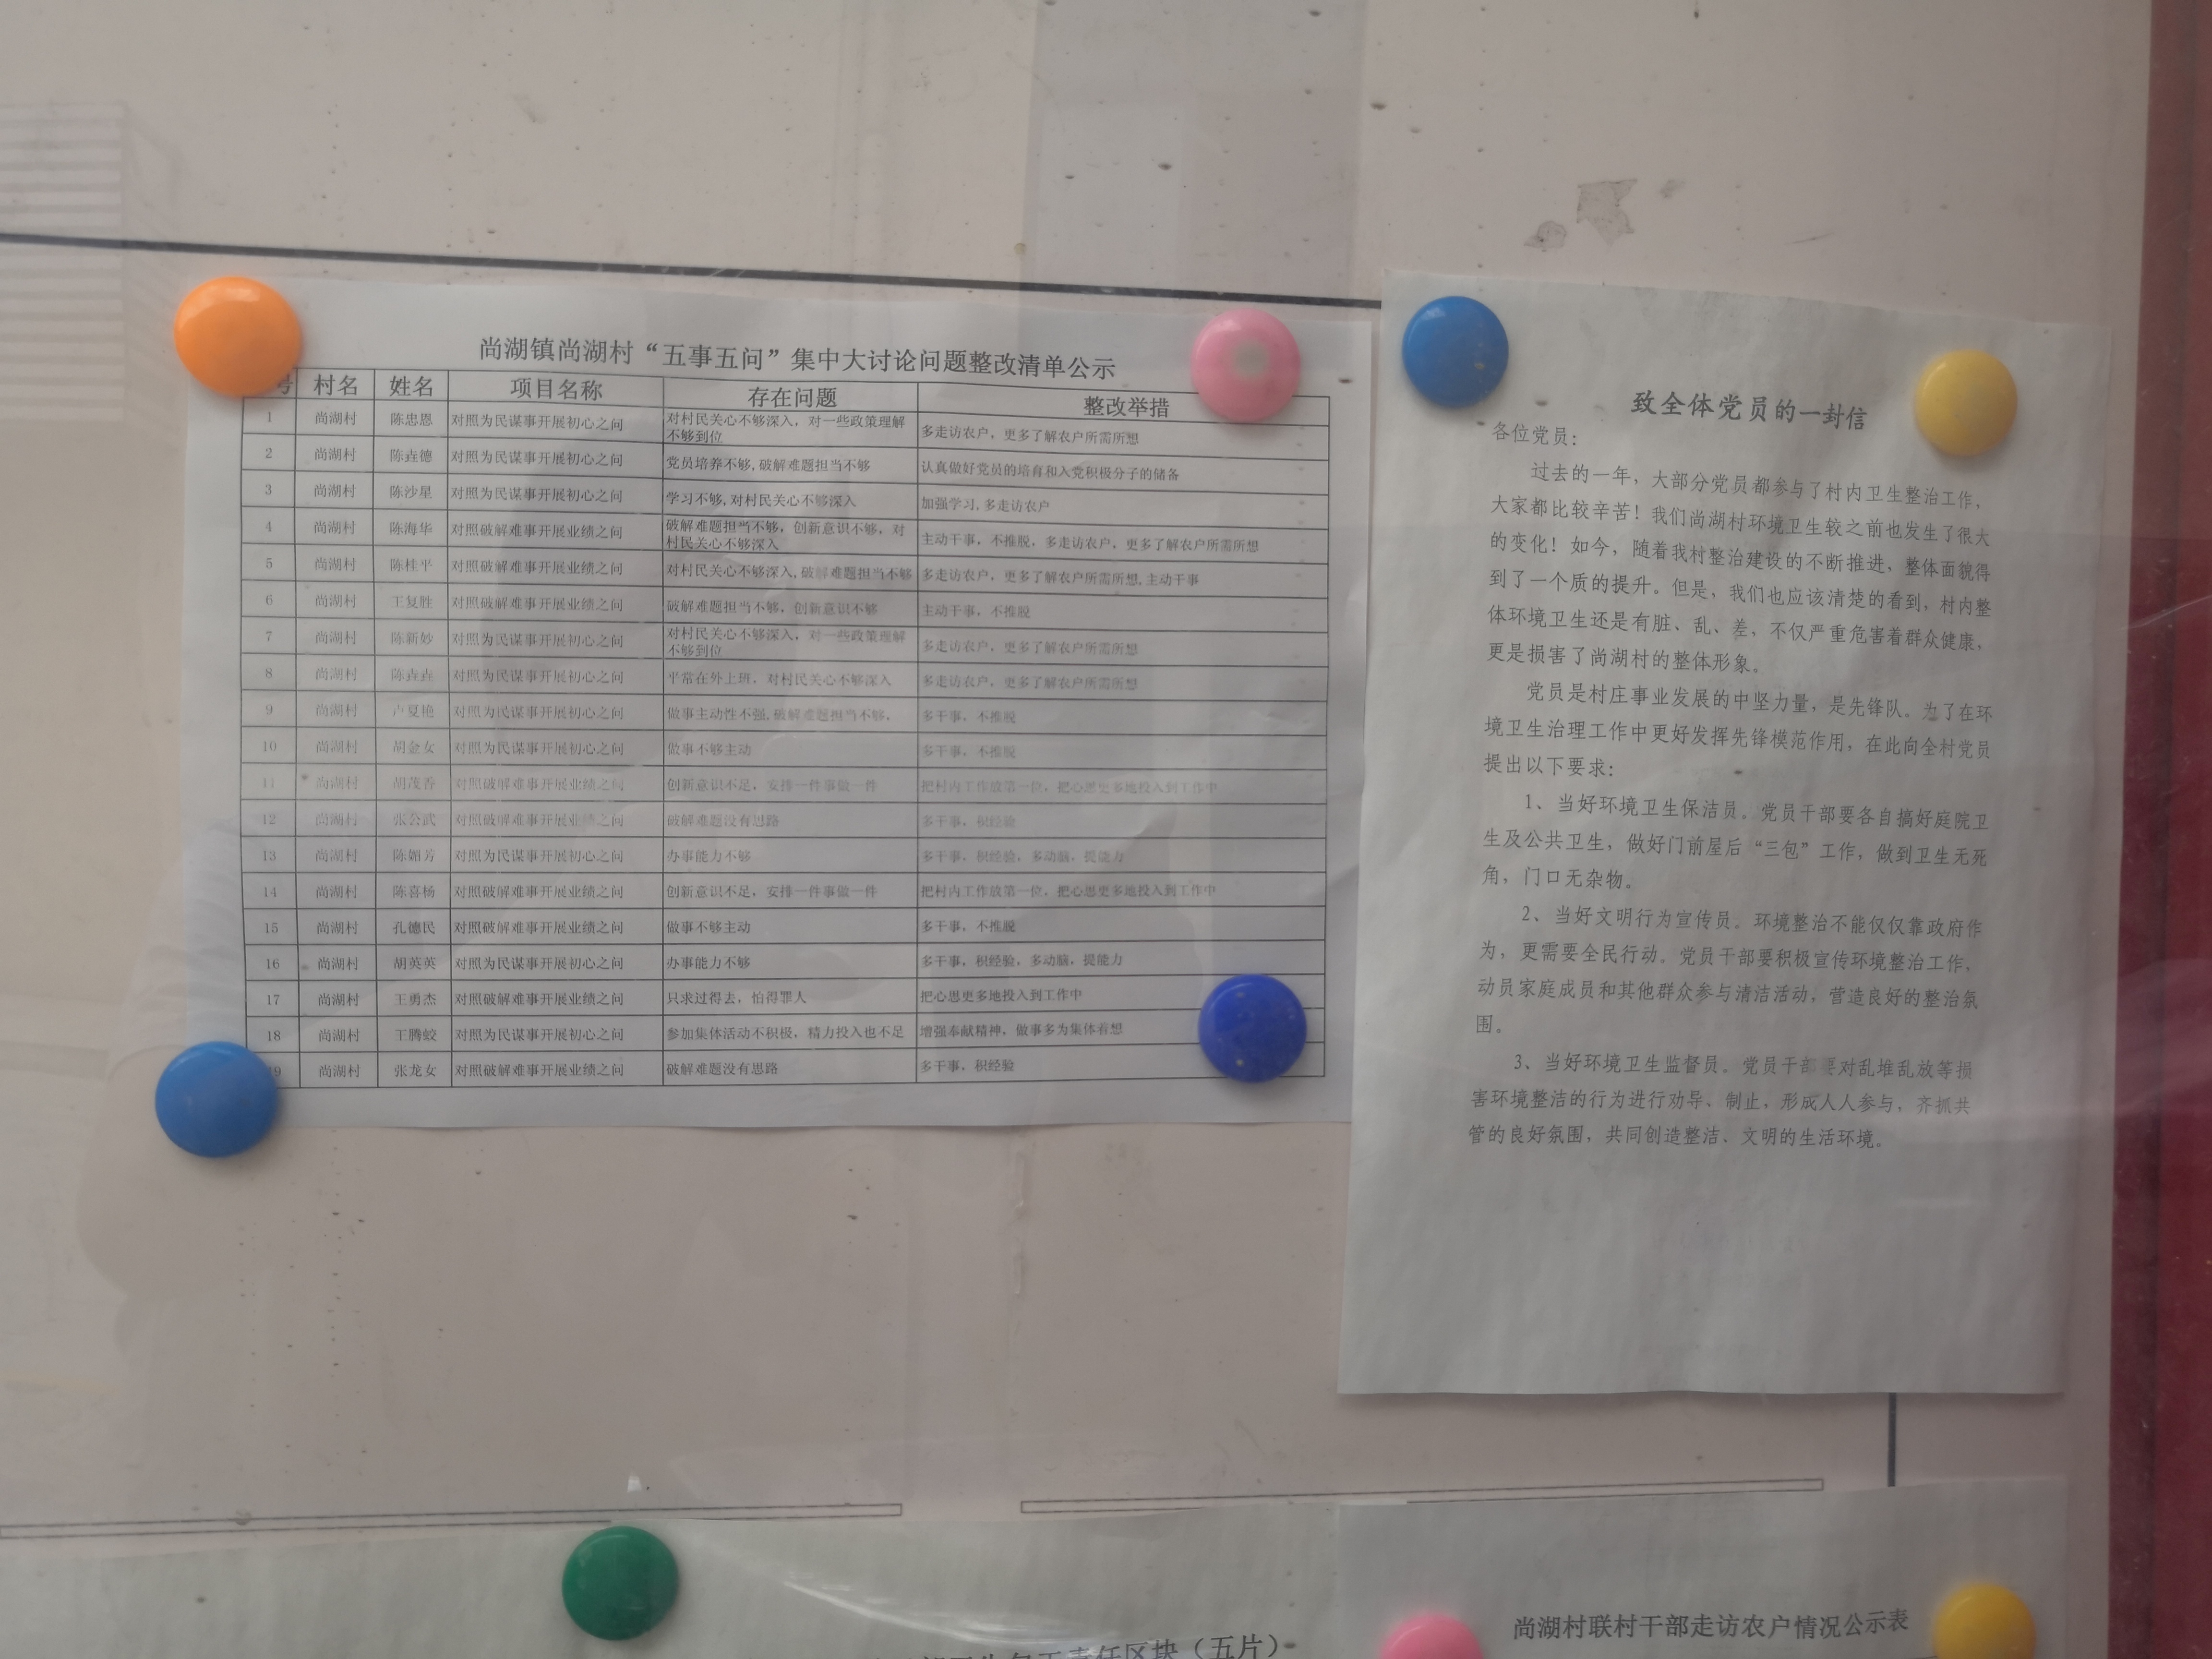 尚湖镇尚湖村“五事五问”集中大讨论问题整改清单公示
号 村名 姓名 项目名称 存在问题 整改举措
1 尚湖村 陈忠恩 对照为民谋事开展初心之问 对村民关心不够深入，对一些政策理解不够到位 多走访农户，更多了解农户所需所想
2 尚湖村 陈垚德 对照为民谋事开展初心之问 党员培养不够,破解难题担当不够 认真做好党员的培育和入党积极分子的储备
3 尚湖村 陈沙星 对照为民谋事开展初心之问 学习不够,对村民关心不够深入 加强学习,多走访农户
4 尚湖村 陈海华 对照破解难事开展业绩之问 破解难题担当不够，创新意识不够，对村民关心不够深入 主动干事，不推脱，多走访农户，更多了解农户所需所想
5 尚湖村 陈桂平 对照破解难事开展业绩之问 对村民关心不够深入,破解难题担当不够 多走访农户，更多了解农户所需所想,主动干事
6 尚湖村 王复胜 对照破解难事开展业绩之问 破解难题担当不够，创新意识不够 主动干事，不推脱
7 尚湖村 陈新妙 对照为民谋事开展初心之问 对村民关心不够深入，对一些政策理解不够到位 多走访农户，更多了解农户所需所想
8 尚湖村 陈垚垚 对照为民谋事开展初心之问 平常在外上班，对村民关心不够深入 多走访农户，更多了解农户所需所想
9 尚湖村 卢夏艳 对照为民谋事开展初心之问 做事主动性不强,破解难题担当不够， 多干事，不推脱
10 尚湖村 胡金女 对照为民谋事开展初心之问 做事不够主动 多干事，不推脱
11 尚湖村 胡茂香 对照破解难事开展业绩之问 创新意识不足，安排一件事做一件 把村内工作放第一位，把心思更多地投入到工作中
12 尚湖村 张公武 对照破解难事开展业绩之问 破解难题没有思路 多干事，积经验
13 尚湖村 陈媚芳 对照为民谋事开展初心之问 办事能力不够 多干事，积经验，多动脑，提能力
14 尚湖村 陈喜杨 对照破解难事开展业绩之问 创新意识不足，安排一件事做一件 把村内工作放第一位，把心思更多地投入到工作中
15 尚湖村 孔德民 对照破解难事开展业绩之问 做事不够主动 多干事，不推脱
16 尚湖村 胡英英 对照为民谋事开展初心之问 办事能力不够 多干事，积经验，多动脑，提能力
17 尚湖村 王勇杰 对照破解难事开展业绩之问 只求过得去，怕得罪人 把心思更多地投入到工作中
18 尚湖村 王腾蛟 对照为民谋事开展初心之问 参加集体活动不积极，精力投入也不足 增强奉献精神，做事多为集体着想
19 尚湖村 张龙女 对照破解难事开展业绩之问 破解难题没有思路 多干事，积经验
致全体党员的一封信
各位党员：
过去的一年，大部分党员都参与了村内卫生整治工作，
大家都比较辛苦！我们尚湖村环境卫生较之前也发生了很大
的变化！如今，随着我村整治建设的不断推进，整体面貌得
到了一个质的提升。但是，我们也应该清楚的看到，村内整
体环境卫生还是有脏、乱、差，不仅严重危害着群众健康，
更是损害了尚湖村的整体形象。
党员是村庄事业发展的中坚力量，是先锋队。为了在环
境卫生治理工作中更好发挥先锋模范作用，在此向全村党员
提出以下要求：
1、当好环境卫生保洁员。党员干部要各自搞好庭院卫
生及公共卫生，做好门前屋后“三包”工作，做到卫生无死
角，门口无杂物。
2、当好文明行为宣传员。环境整治不能仅仅靠政府作
为，更需要全民行动。党员干部要积极宣传环境整治工作，
动员家庭成员和其他群众参与清洁活动，营造良好的整治氛
围。
3、当好环境卫生监督员。党员干部要对乱堆乱放等损
害环境整洁的行为进行劝导、制止，形成人人参与，齐抓共
管的良好氛围，共同创造整洁、文明的生活环境。
责任区块（五片）
尚湖村联村干部走访农户情况公示表